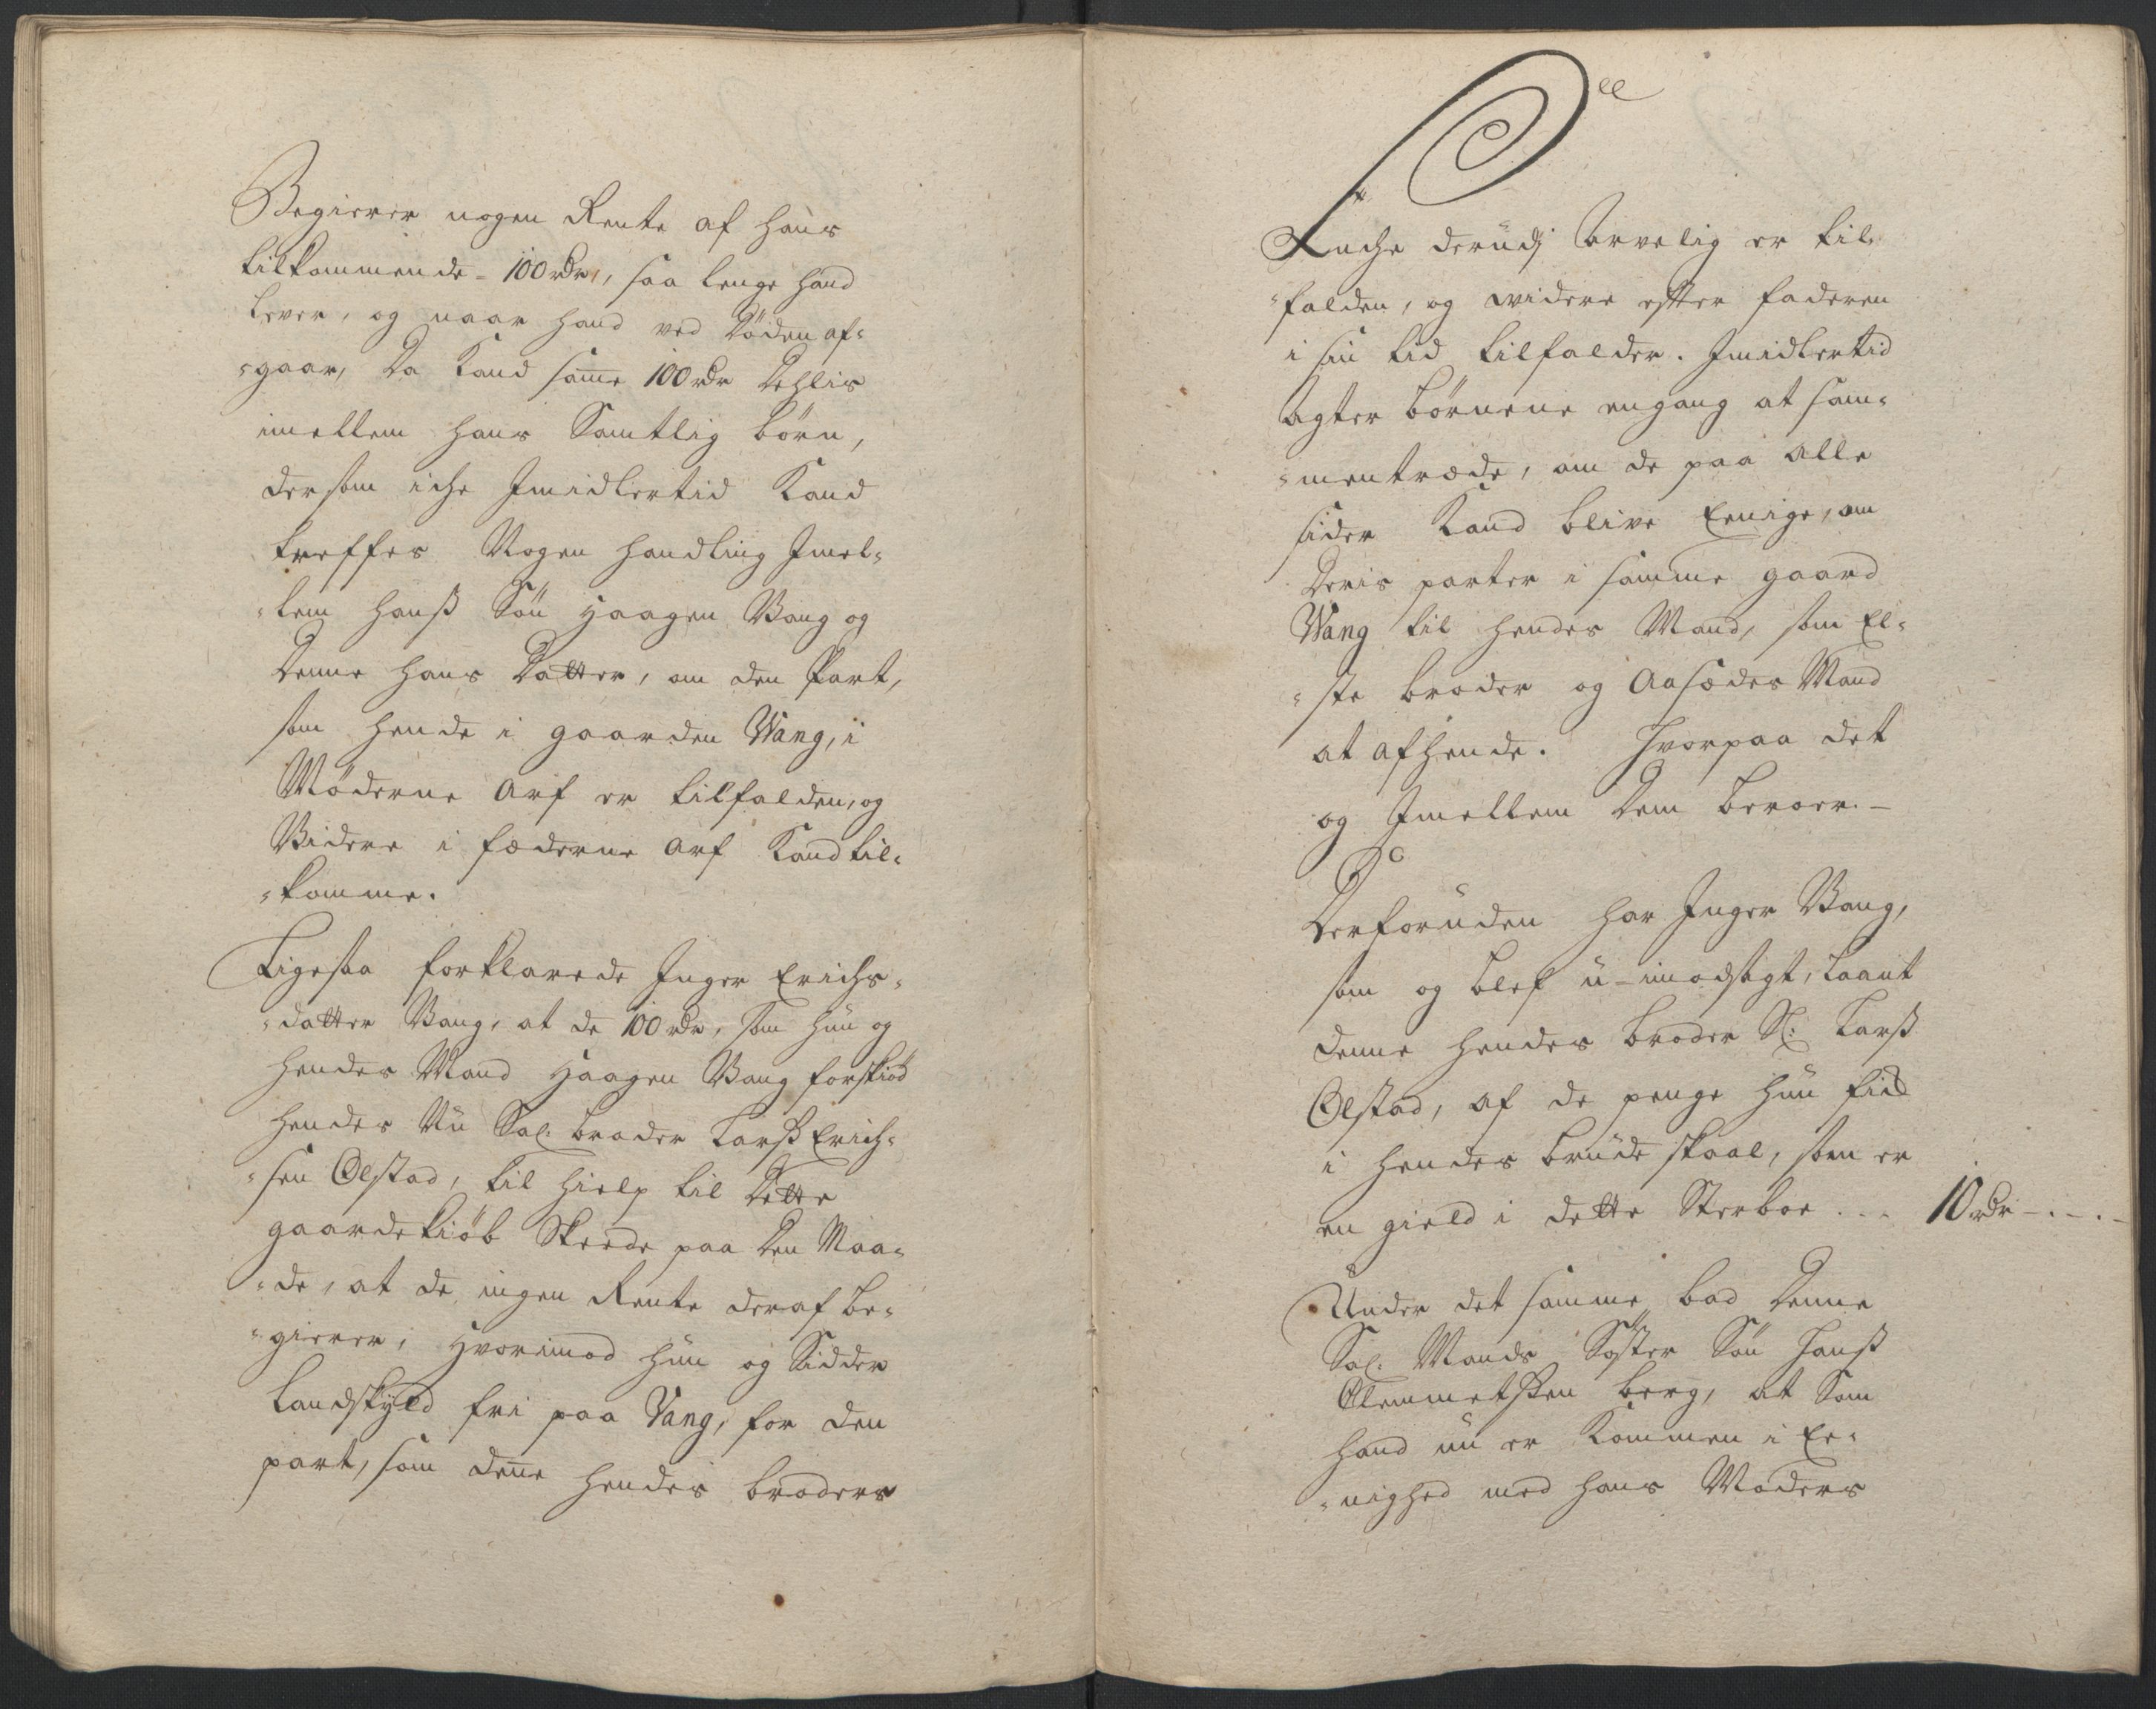 Begierer nogen Rente af hans
tilkommende 100 rdr, saa lenge hand
lever, og naar hand ved Döden af-
-gaar, Da Kand samme 100 rdr Dehlis
imellem hans Samtlig börn,
dersom iche Imidlertid Kand
treffes Nogen handling Imel-
-lem hanß Sön Haagen Vang og
Denne hans Datter, om den Part,
som hende i gaarden Wang, i
Möderne Arf er tilfalden, og
Videre i fæderne Arf Kand til-
-komme.
Ligesaa forklarede Inger Erichs-
-datter Vang, at de 100 rdr, som hun og
hendes Mand Haagen Vang forskiöd
hendes Nu Sal. broder Larß Erich-
-sen Olstad, til hielp til Dette
gaardekiöb Skeede paa Den Maa-
-de, at de ingen Rente deraf be-
-gierer, Hvorimod hun og Sidder
Landskyld fri paa Vang, for den
part, som denne hendes broders
Enche derudj Arvelig er til-
-falden, og widere efter faderen
i sin tid tilfalder. Imidlertid
agter börnene engang at sam-
-mentræde, om de paa alle
sider Kand blive Eenige, om
Deris parter i samme gaard
Wang til hendes Mand, som El-
-ste broder og Aasædes Mand
at afhende. Hvorpaa det
og Imellem Dem beroer.-
Derforuden har Inger Vang,
som og blef u-imodsagt, laant
denne hendes broder Sl: Larß
Olstad, af de penge hun fick
i hendes brude skaal, som er
en gield i dette Sterboe ... 10 rdr -.-.-
Under det samme bad Denne
Sal. Mands Söster Sön Hanß
Clemmetßen berg, at Som
hand nu er Kommen i Ee-
-nighed med hans Moders